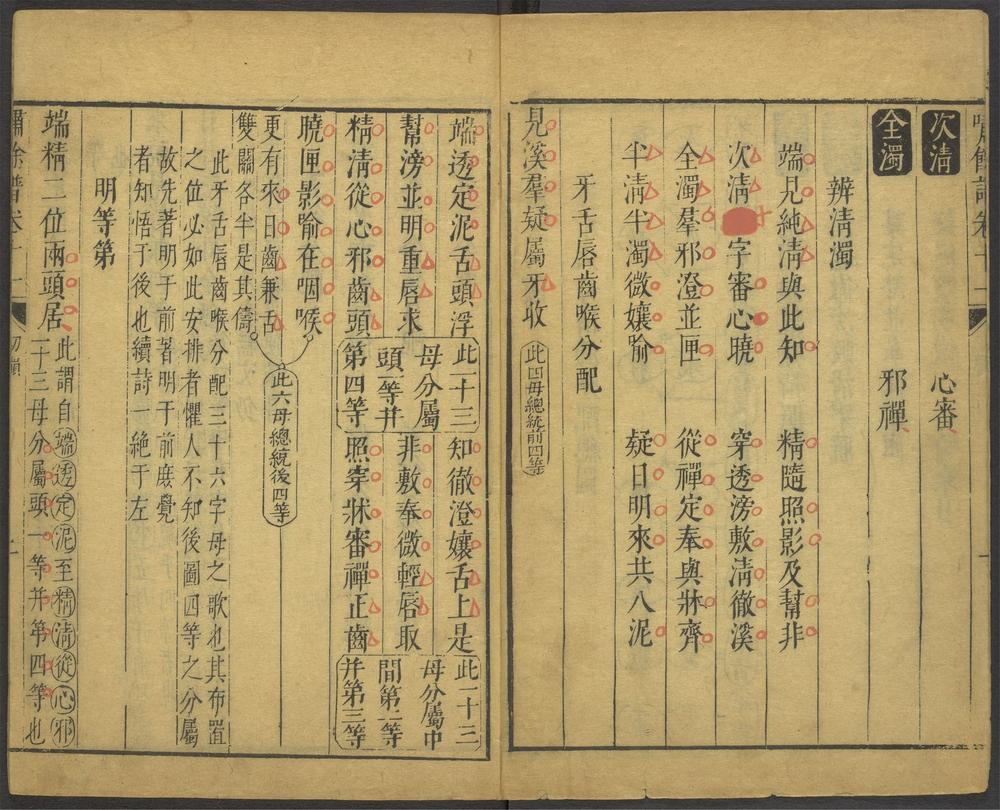 嘯餘譜卷十一
次清 心審
全濁 邪禪
辨清濁
端見純清與此知 精隨照影及幫非
次清字審心曉 穿透滂敷清徹溪
全濁羣邪澄並匣 從禪定奉與牀齊
半清半濁微孃喻 疑日明來共八泥
牙舌唇齒喉分配
見溪羣疑屬牙收 此四母總統前四等
端透定泥舌頭浮 知徹澄孃舌上是
幫滂並明重唇求 非敷奉微輕唇取
精清從心邪齒頭 照穿牀審禪正齒
此一十三
母分屬
頭一等并
第四等
此一十三
母分屬中
間第二等
并第三等
曉匣影喻在咽喉
更有來日齒兼舌
雙關各半是其儔
此六母總統後四等
此牙舌唇齒喉分配三十六字母之歌也其布置
之位必如此安排者懼人不知後圖四等之分屬
故先著明于前著明于前庶覺
者知悟于後也續詩一絕于左
明等第
端精二位兩頭居 此謂自端透定泥至精清從心邪
一十三母分屬頭一等并第四等也
嘯餘譜卷十一 切韻 二